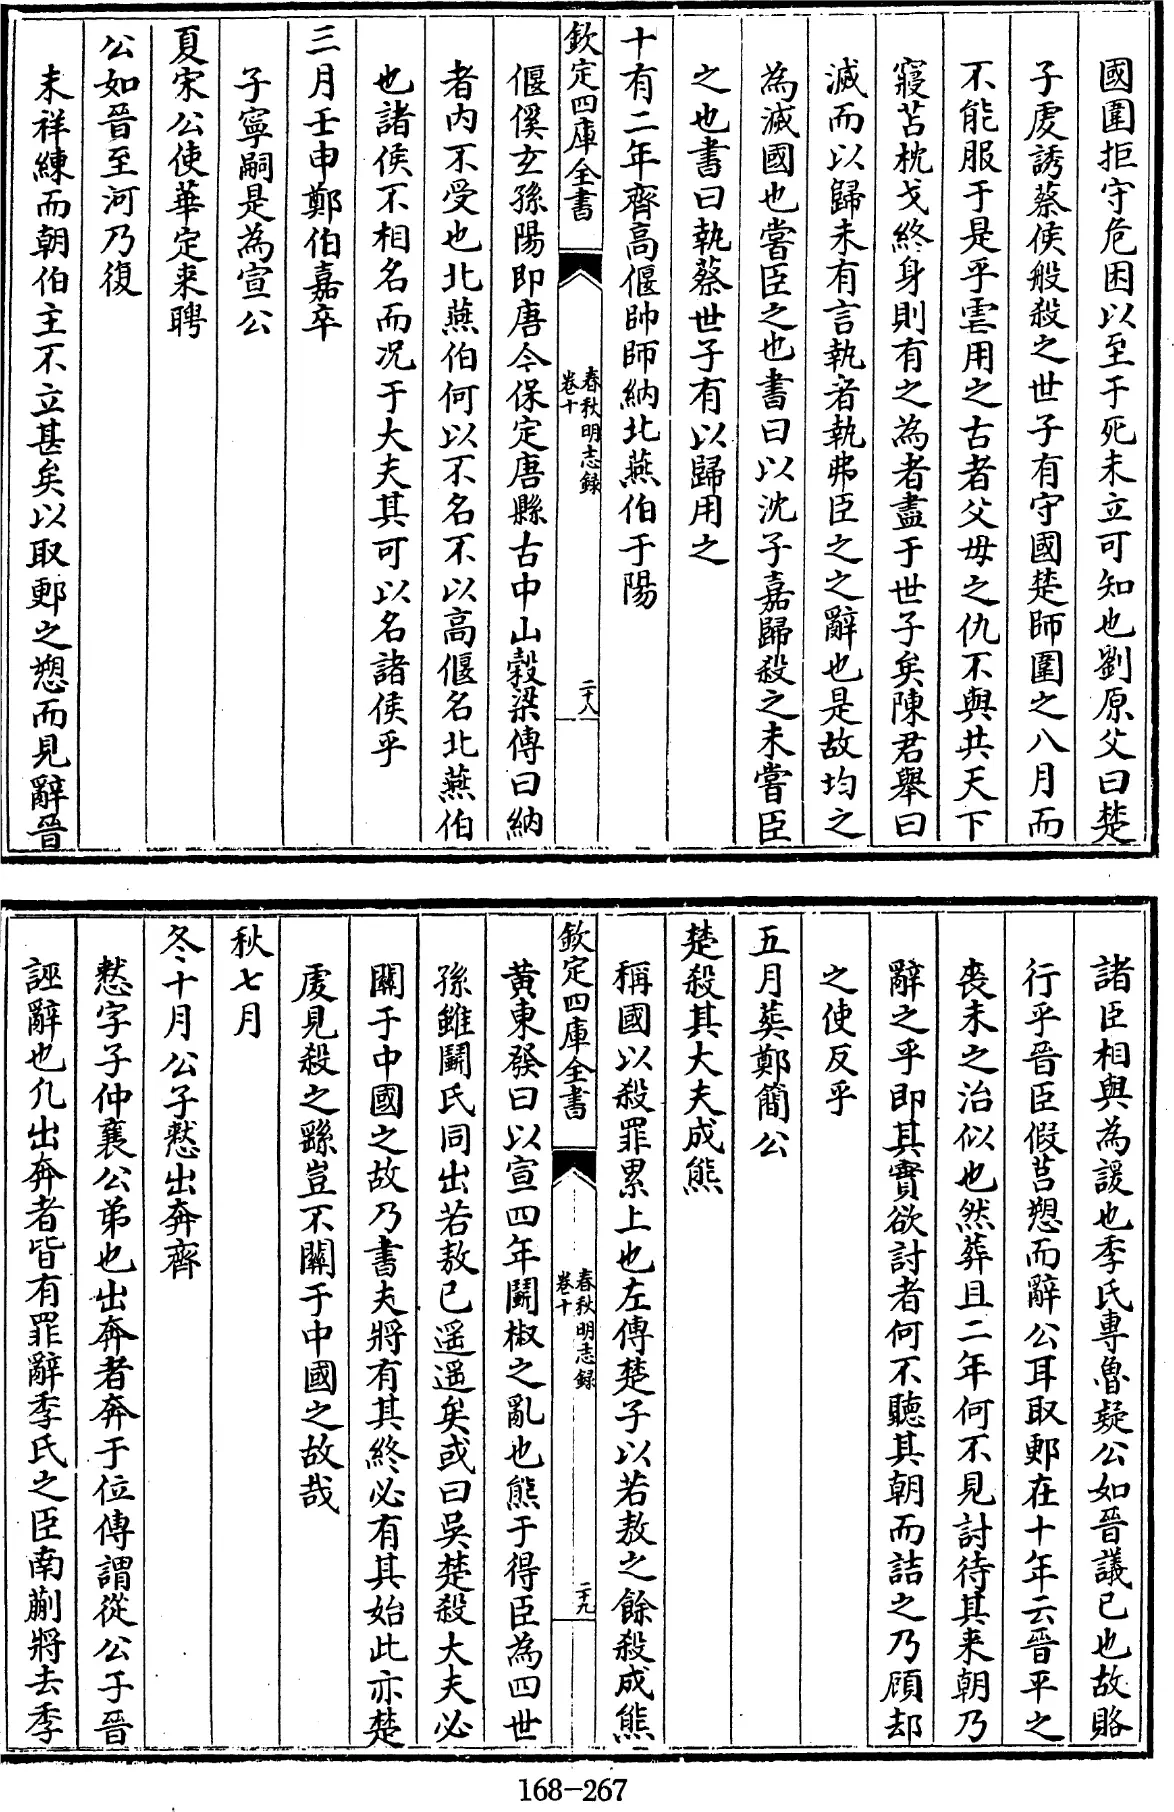 國圍拒守危困以至于死未立可知也劉原父曰楚
子虔誘蔡侯般殺之世子有守國楚師圍之八月而
不能服于是乎虐用之古者父母之仇不與共天下
寢苫枕戈終身則有之為者盡于世子矣陳君舉曰
滅而以歸未有言執者執弗臣之之辭也是故均之
為滅國也嘗臣之也書曰以沈子嘉歸殺之未嘗臣
之也書曰執蔡世子有以歸用之
十有二年齊高偃帥師納北燕伯于陽
欽定四庫全書
春秋明志録
卷十
二十八
偃傒玄孫陽即唐今保定唐縣古中山穀梁傳曰納
者内不受也北燕伯何以不名不以高偃名北燕伯
也諸侯不相名而况于大夫其可以名諸侯乎
三月壬申鄭伯嘉卒
子寧嗣是為宣公
夏宋公使華定来聘
公如晉至河乃復
未祥練而朝伯主不立甚矣以取鄆之愬而見辭晉
諸臣相與為諼也季氏專魯疑公如晉議已也故賂
行乎晉臣假莒愬而辭公耳取鄆在十年云晉平之
喪未之治似也然葬且二年何不見討待其来朝乃
辭之乎即其實欲討者何不聽其朝而詰之乃頋却
之使反乎
五月葬鄭簡公
楚殺其大夫成熊
稱國以殺罪累上也左傳楚子以若敖之餘殺成熊
欽定四庫全書
春秋明志録
卷十
二十九
黄東發曰以宣四年鬭椒之亂也熊于得臣為四世
孫雖鬭氏同出若敖已遥遥矣或曰吳楚殺大夫必
關于中國之故乃書夫將有其終必有其始此亦楚
虔見殺之繇豈不關于中國之故哉
秋七月
冬十月公子憖出奔齊
憖字子仲襄公弟也出奔者奔于位傳謂從公于晉
誣辭也凡出奔者皆有罪辭季氏之臣南蒯將去季
168-267